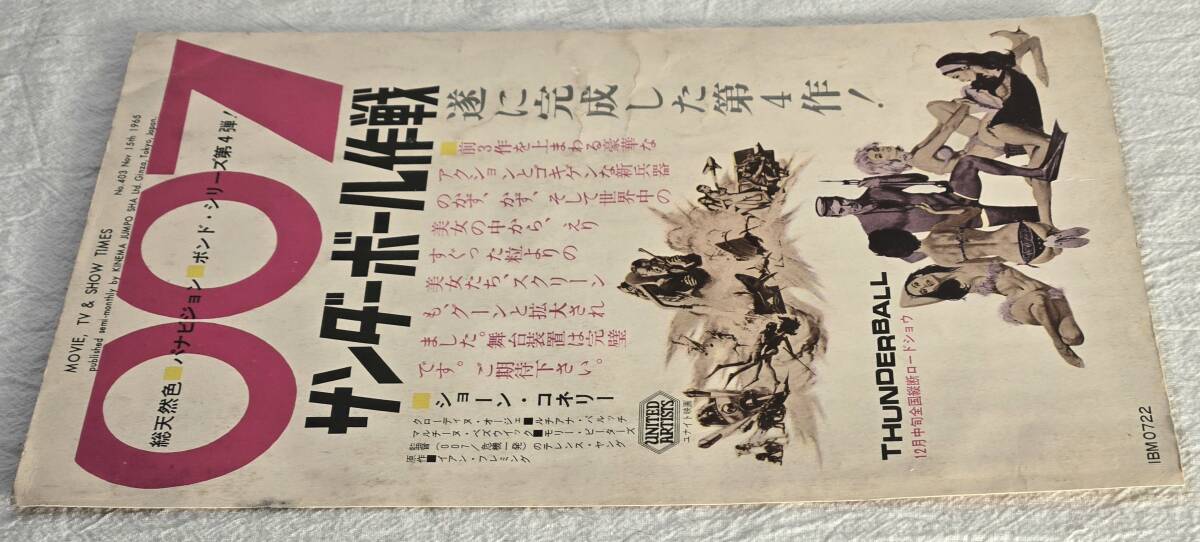 MOVIE, TV & SHOW TIMES No. 403 Nov 15th 1965
published semi-monthly by KINEMA JUMPO SHA Ltd. Ginza, Tokyo, Japan.
007
総天然色■パナビジョン■ボンド・シリーズ第4弾!
サンダーボール作戦
遂に完成した第4作!
■前3作を上まわる豪華な
アクションとゴキゲンな新兵器
のかず、かず、そして世界中の
美女の中から、えり
すぐった粒よりの
美女たち、スクリーン
も、グーンと拡大され
ました。舞台装置は完璧
です。ご期待下さい。
■ショーン・コネリー
クローディヌ・オージェ■ルチアナ・パルッチ
マルチーヌ・ベズウイック■モリー・ピータース
監督(007/危機一発)のテレンス・ヤング
原作■イアン・フレミング
UNITED
ARTISTS
ユナイト映画
THUNDERBALL
12月中旬全国縦断ロードショウ
IBM 0722